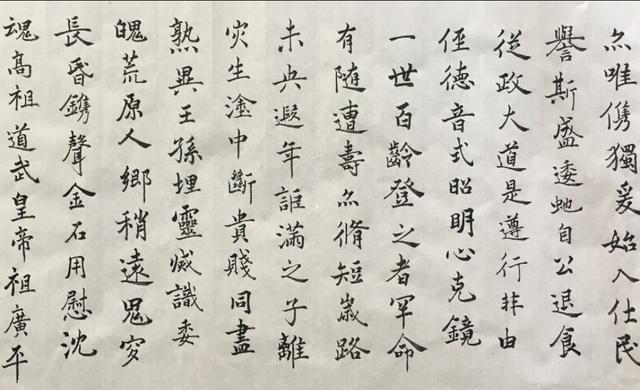 亦唯儁獨爰始入仕民
譽斯盛逶虵自公退食
從政大道是遵行非由
俓德音式昭明心克鏡
一世百齡登之者罕命
有隨遭壽亦脩短歲路
未央遐年詎滿之子離
灾生塗中斷貴賤同盡
熟異王孫埋靈滅識委
魄荒原人鄉稍遠鬼穸
長昏鐫聲金石用慰沈
魂高祖道武皇帝祖廣平